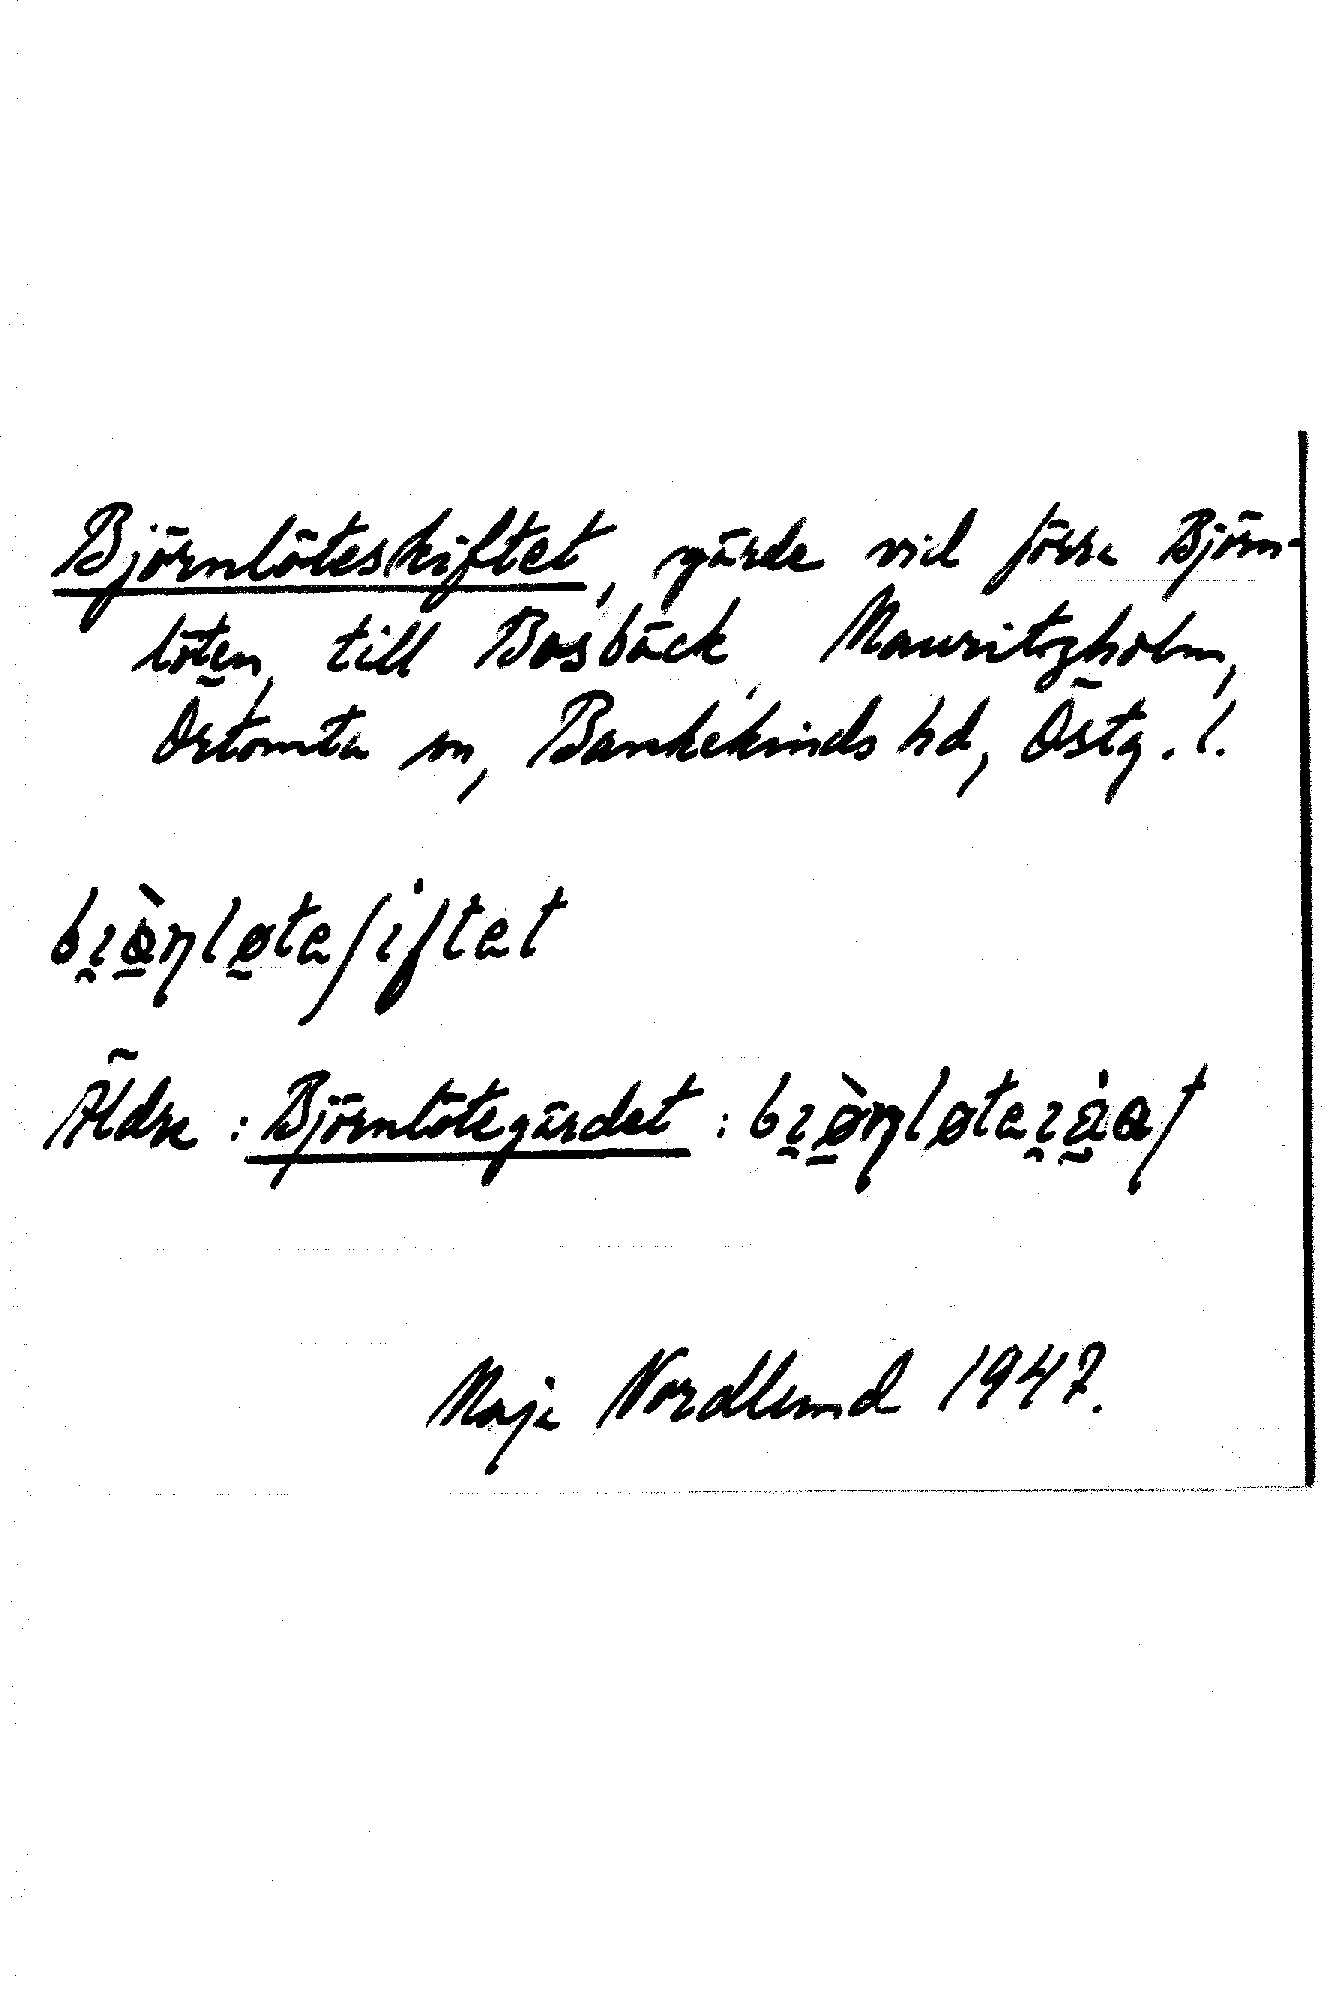 Björnlöteskiftet, gärde vid förra Björn-
löten, till Bosbäck, Mauritzholm,
Örtomta sn, Bankekinds hd, Östg. l.
bɪø̀ɳløteʃiftet
Äldre : Björnlötegärdet :
Maja Nordlund 1947.